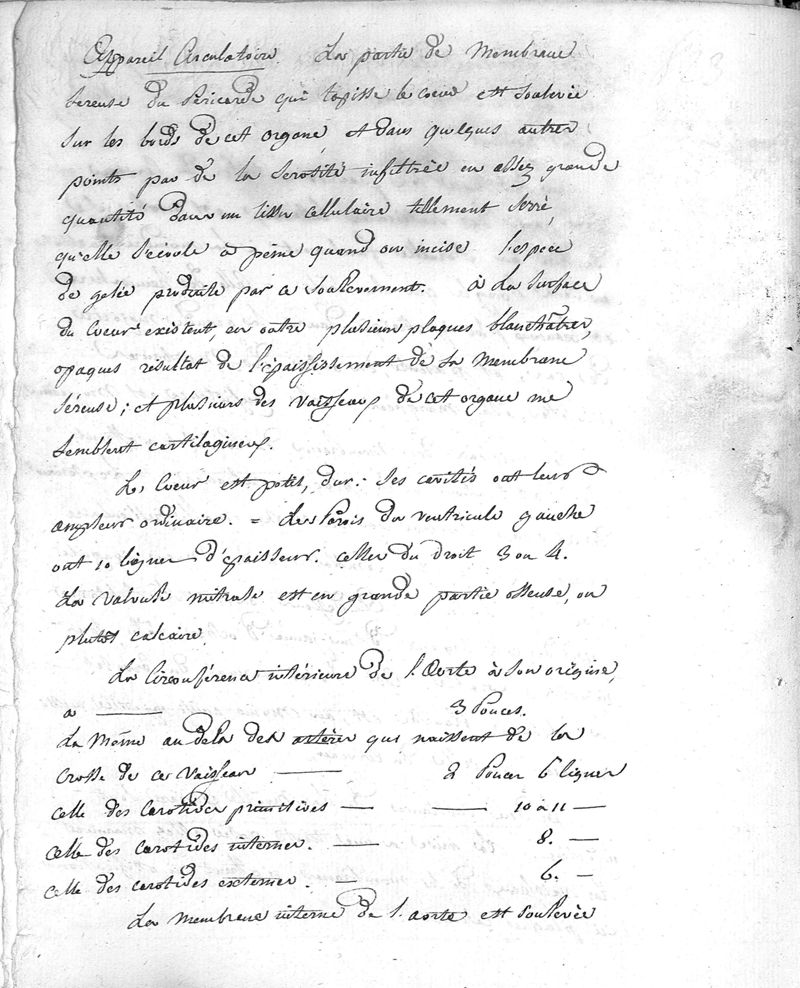 Appareil Circulatoire. La partie de Membrane
sereuse du Péricarde qui tapisse le coeur est soulevée
sur les bords de cet organe, et dans quelques autres
points par de la serosité infiltrée en assez grande
quantité dans un tissu cellulaire tellement serré,
qu'elle s'écoule a peine quand on incise l'espece
de gelée produite par ce soulevement. à la surface
du Coeur existent, en outre plusieurs plaques blanchâtres,
opaques résultat de l'épaississement de sa Membrane
séreuse; et plusieurs des vaisseaux de cet organe me
semblent cartilagineux.
Le Coeur est petit, dur: ses cavités ont leur
ampleur ordinaire. = Les Parois du ventricule gauche
ont 10 lignes d'épaisseur. celles du droit 3 ou 4.
La valvule mitrale est en grande partie osseuse, ou
plutôt calcaire.
La Circonférence intérieure de l'Aorte à son origine,
a — 3 Pouces.
La Même au delà des artères qui naissent de la
crosse de ce vaisseau — 2 Pouces 6 lignes
celle des Carotides primitives — — 10 à 11 —
celle des carotides internes. — 8. —
celle des carotides externes. — 6. —
La Membrane interne de l'aorte est soulevée